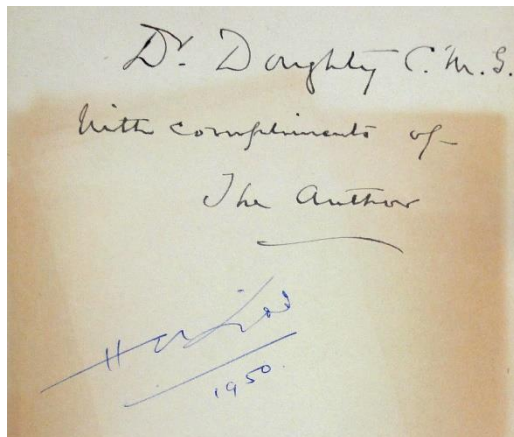 Dr. Doughty C.M.G.
With compliments of
The Author
1950.